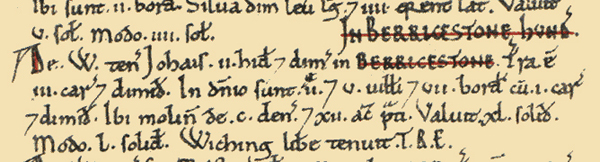 Ibi sunt .ii. bord. Silua dim leu lg. ⁊ .iiii. qrent lat. Valuit
.v. sol. Modo .iiii. sol. IN BERRICESTONE HUND.
De .W. ten Johais .ii. hid ⁊ dim in BERRICESTONE. Tra ē
.iii. car ⁊ dimid. In dnio sunt .ii. ⁊ .v. uilli ⁊ .vii. bord cū .i. car
⁊ dimid. Ibi molin de .c. den. ⁊ xii. ac pti. Valuit .xl. solid.
Modo .l. solid. Wiching libe tenuit T.R.E.